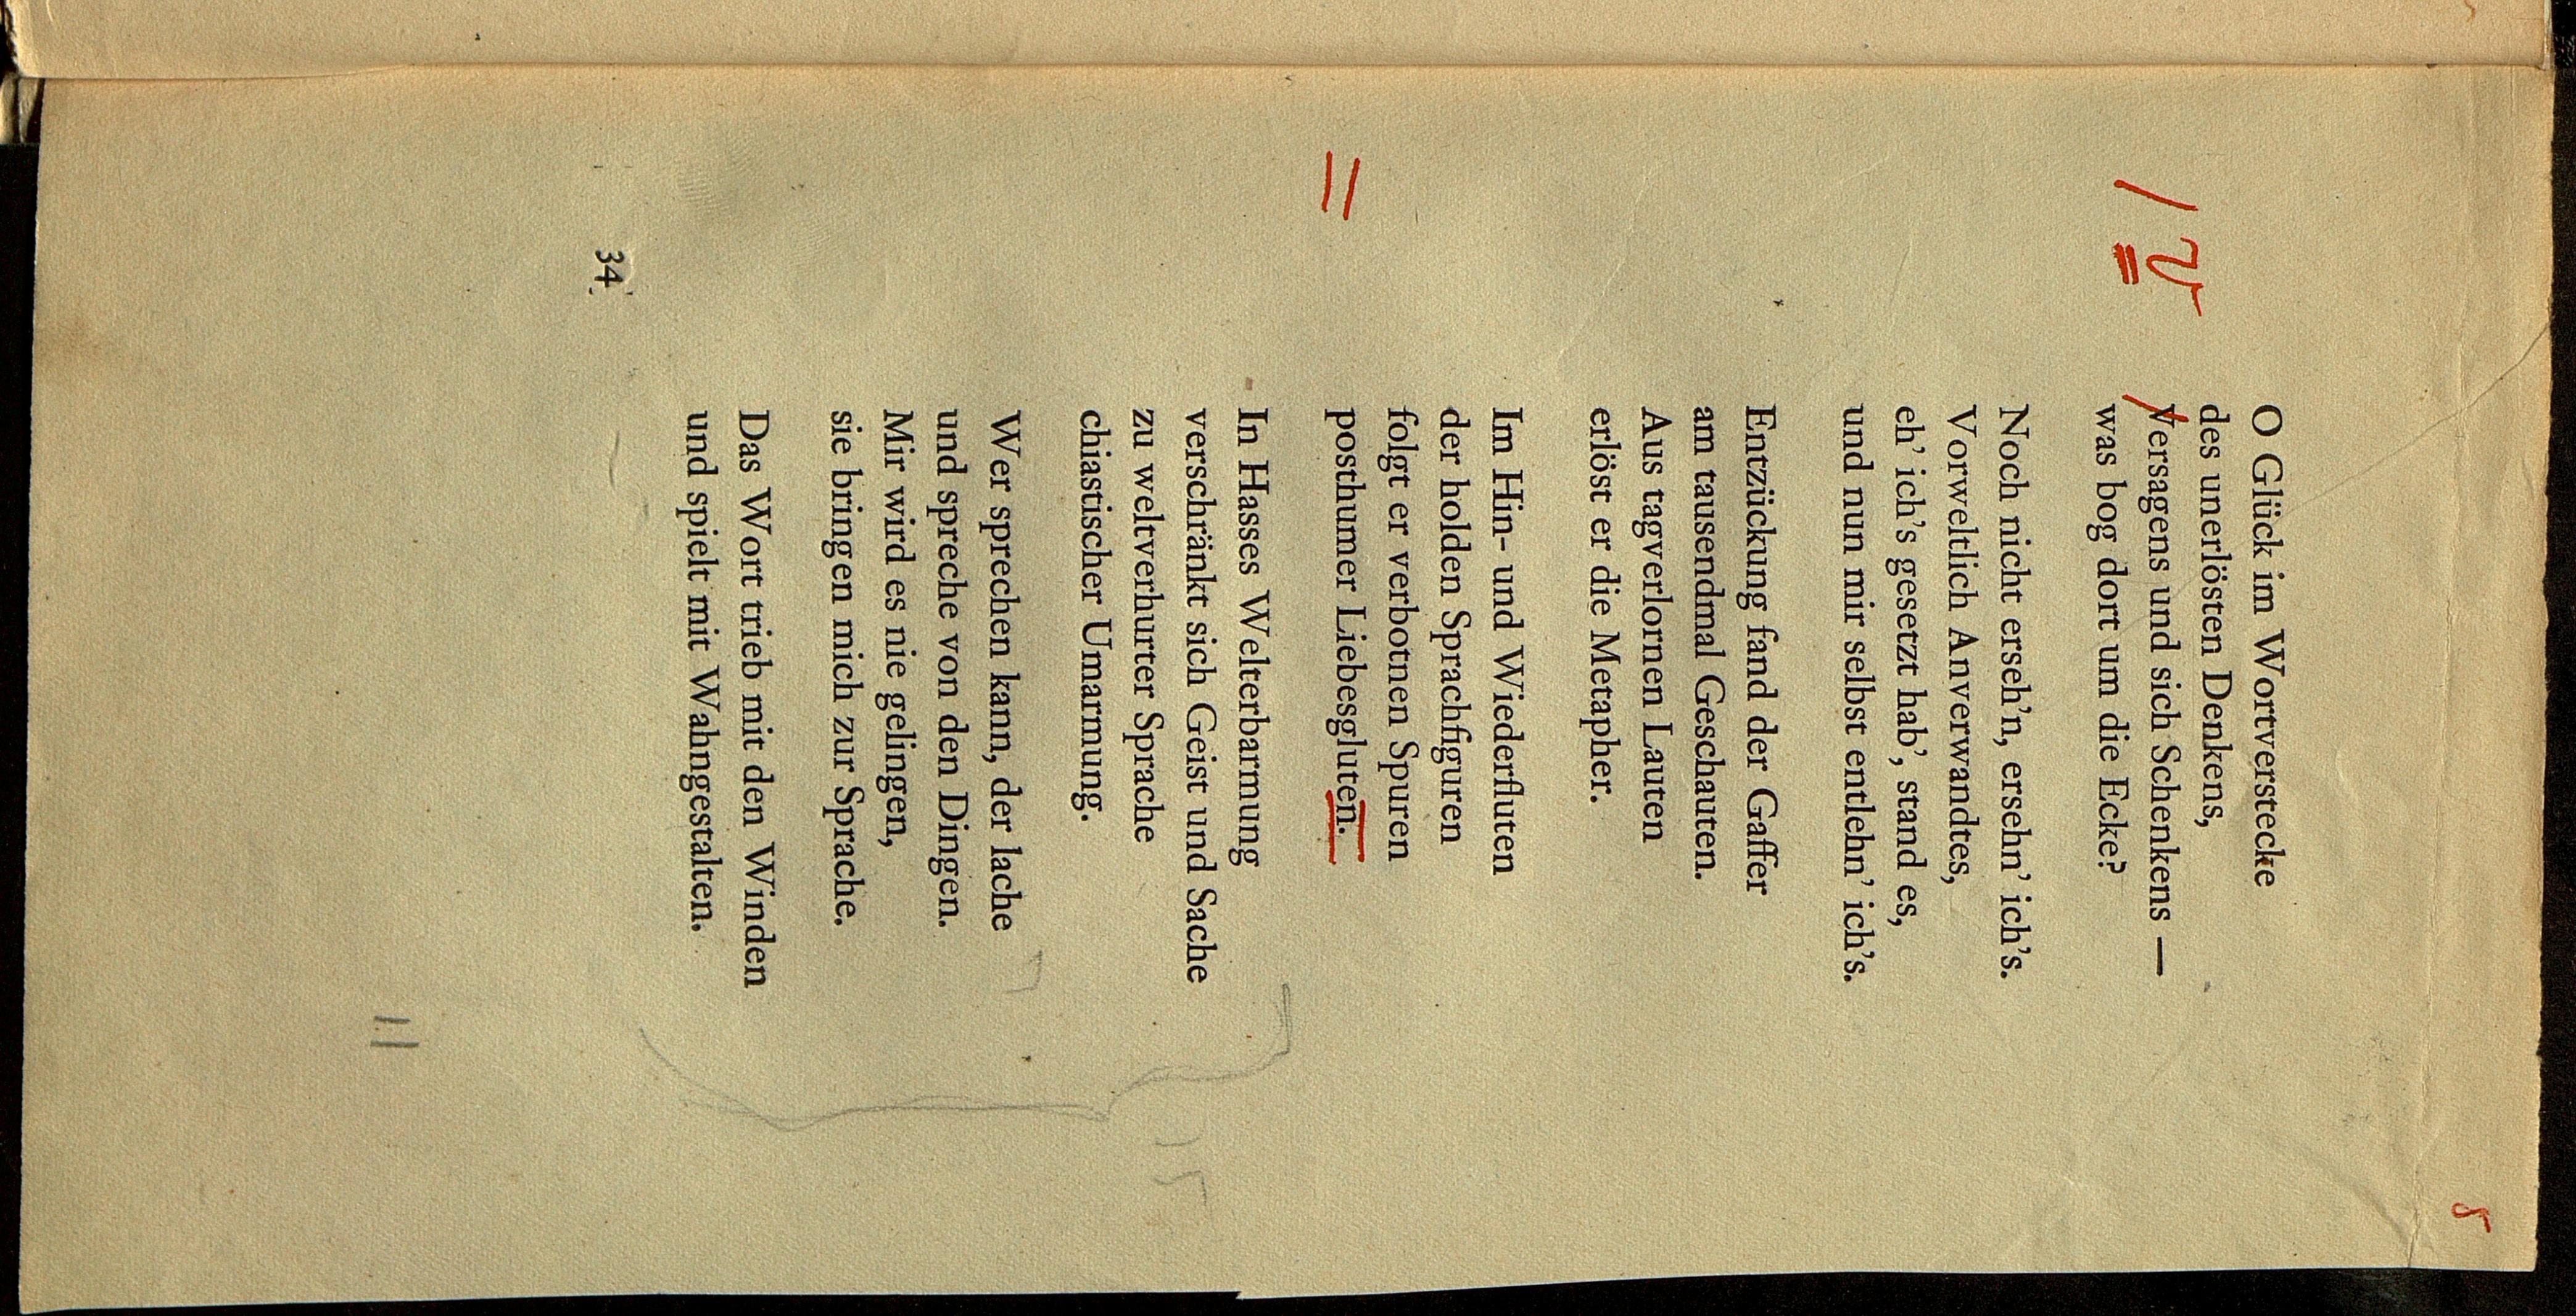 8
O Glück im Wortverstecke
des unerlösten Denkens,
Versagens und sich Schenkens —
was bog dort um die Ecke?
/ V
Noch nicht erseh'n, ersehn' ich's.
Vorweltlich Anverwandtes,
eh' ich's gesetzt hab', stand es,
und nun mir selbst entlehn' ich's.
Entzückung fand der Gaffer
am tausendmal Geschauten.
Aus tagverlornen Lauten
erlöst er die Metapher.
Im Hin- und Wiederfluten
der holden Sprachfiguren
folgt er verbotnen Spuren
posthumer Liebesgluten.
In Hasses Welterbarmung
verschränkt sich Geist und Sache
zu weltverhurter Sprache
chiastischer Umarmung.
Wer sprechen kann, der lache
und spreche von den Dingen.
Mir wird es nie gelingen,
sie bringen mich zur Sprache.
Das Wort trieb mit den Winden
und spielt mit Wahngestalten.
34